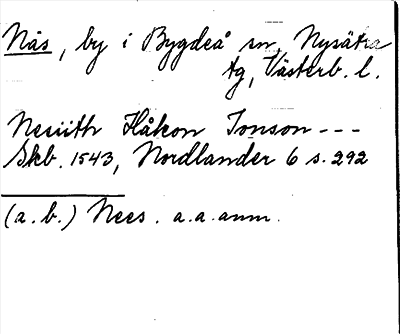 Näs, by i Bygdeå sn, Nysätra
tg, Västerb. l.
Håkon Jonson ---
Skb. 1543, Nordlander 6 s. 292
(a. b.) Nees. a. a. anm.